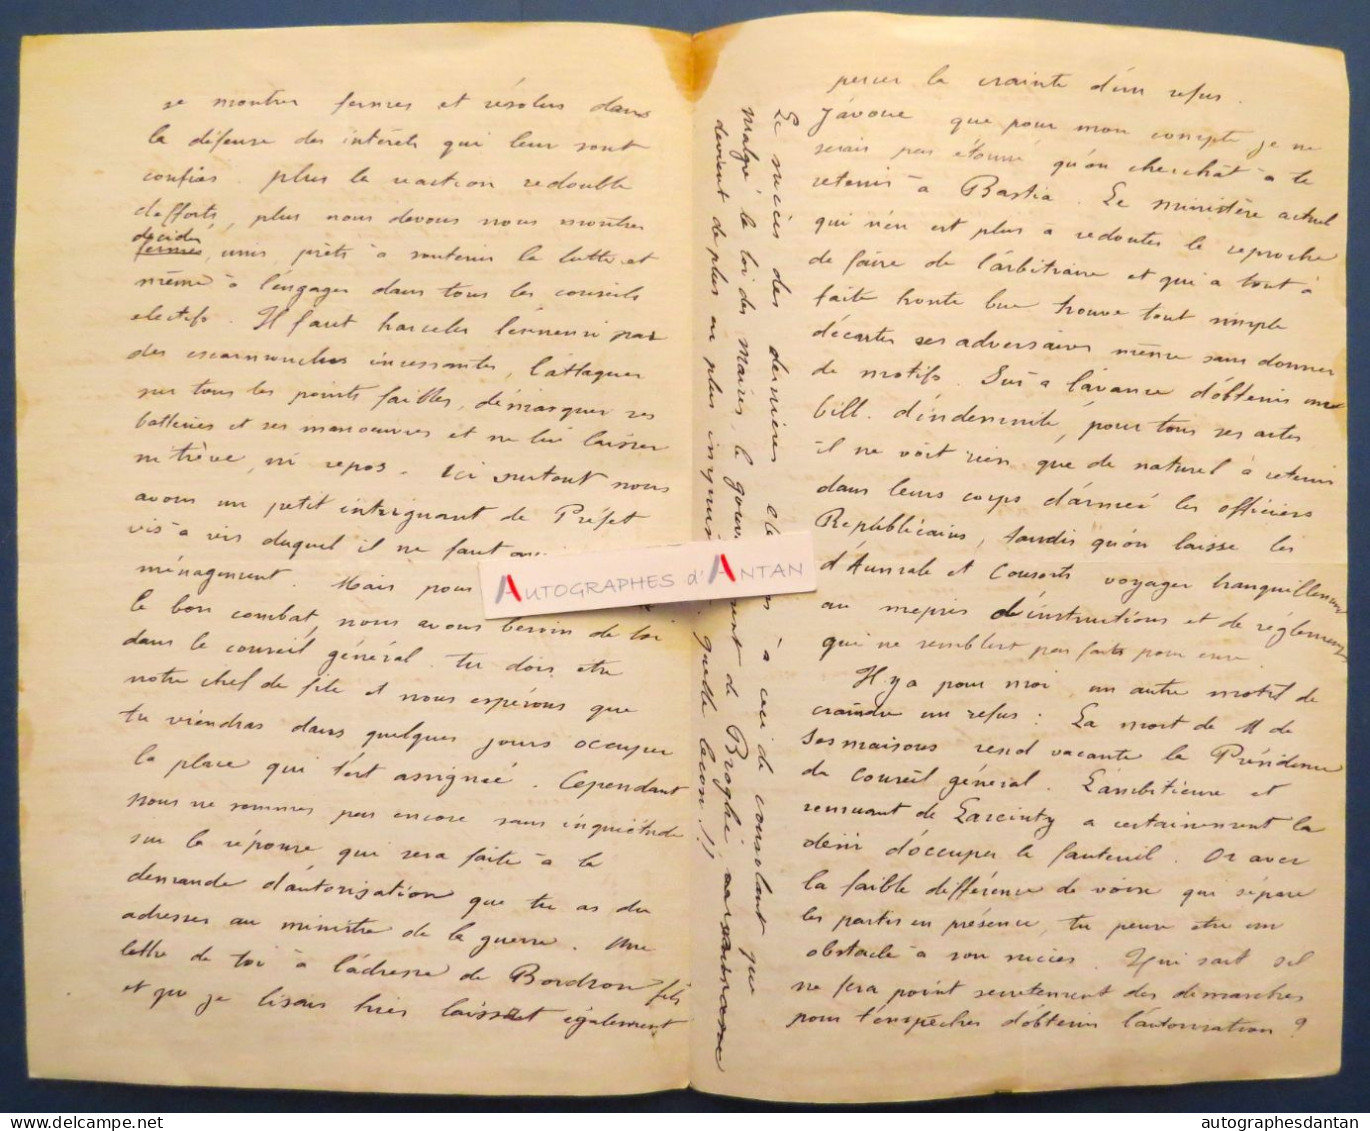 se montrer fermes et résolus dans
la défense des intérêts qui leur sont
confiés. plus la réaction redouble
d'efforts, plus nous devons nous montrer
décidés
fermes, unis, prêts à soutenir la lutte et
même à l'engager dans tous les conseils
electifs. Il faut harceler l'ennemi par
des escarmouches incessantes, l'attaquer
sur tous les points faibles, démasquer ses
batteries et ses manoeuvres et ne lui laisser
ni trève, ni repos. Ici surtout nous
avons un petit intriguant de Préfet
vis à vis duquel il ne faut
ménagement. Mais pour
le bon combat, nous avons besoin de toi
dans le conseil général. tu dois être
notre chef de file et nous espérons que
tu viendras dans quelques jours occuper
la place qui t'est assignée. Cependant
nous ne sommes pas encore sans inquiétude
sur la réponse qui sera faite à la
demande d'autorisation que tu as du
adresser au ministre de la guerre. Une
lettre de toi à l'adresse de Bordron fils
et que je lisais hier laissait également
percer la crainte d'un refus.
J'avoue que pour mon compte je ne
serais pas étonné qu'on cherchât à te
retenir à Bastia. Le ministère actuel
qui n'en est plus à redouter le reproche
de faire de l'arbitraire et qui a tout à
faite honte bue trouve tout simple
d'écarter ses adversaires même sans donner
de motifs. Sûr à l'avance d'obtenir un
bill d'indemnité, pour tous ses actes
il ne voit rien que de naturel à retenir
dans leurs corps d'armée les officiers
Républicains, tandis qu'on laisse les
d'Aumale et Consorts voyager tranquillement
au mepris d'instructions et de réglements
qui ne semblent pas faits pour eux.
Il y a pour moi un autre motif de
craindre un refus: La mort de M de
Sesmaisons rend vacante la Présidence
du Conseil général. L'ambitieux et
remuant de Lareinty a certainement la
désir d'occuper le fauteuil. Or avec
la faible différence de voix qui sépare
les partis en présence, tu peux être un
obstacle à son succès. Qui sait s'il
ne fera point secretement des démarches
pour t'empêcher d'obtenir l'autorisation?
Le succès des dernières à ceci de consolant que
malgré la loi des Maires, le de Broglie,
devient de plus en plus quelle leçon!!
AUTOGRAPHES d'ANTAN
autographesdantan